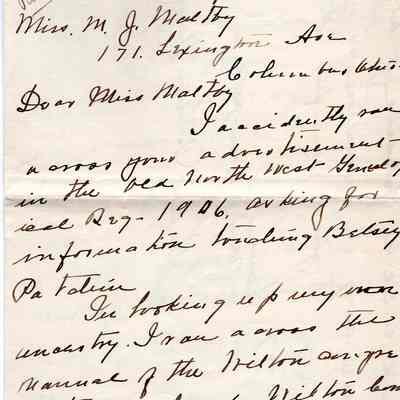 Miss. M. J. Maltby
171. Lexington Ave
Columbus Ohio
Dear Miss Maltby
I accidently ran
across your advertisement
in the Old North West Genealog
ical Reg- 1906, asking for
information touching Betsey
Patchin
In looking up my own
ancestry. I ran across the
manual of the Wilton congre
Wilton Con